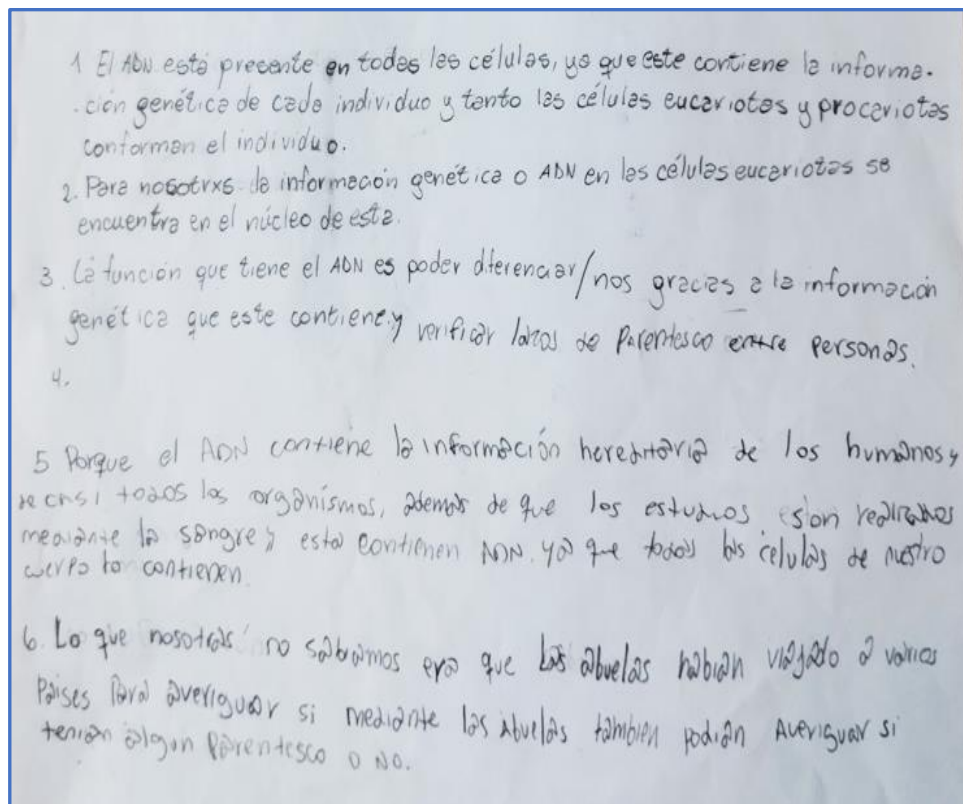 1 El ADN esta presente en todas las células, ya que este contiene la informa-
ción genética de cada individuo y tanto las células eucariotas y procariotas
conforman el individuo.
2. Para nosotrxs la información genética o ADN en las células eucariotas se
encuentra en el núcleo de esta.
3. La función que tiene el ADN es poder diferenciar/nos gracias a la información
genética que este contiene y verificar lazos de Parentesco entre personas.
4.
5 Porque el ADN contiene la información hereditaria de los humanos y
de casi todos los organismos, además de que los estudios están realizados
mediante la sangre y esta contienen ADN. ya que todas las celulas de nuestro
cuerpo lo contienen.
6. Lo que nosotras no sabiamos era que Las abuelas habian viajado a varios
Paises Para averiguar si mediante las abuelas tambien podian Averiguar si
tenian algun Parentesco o No.